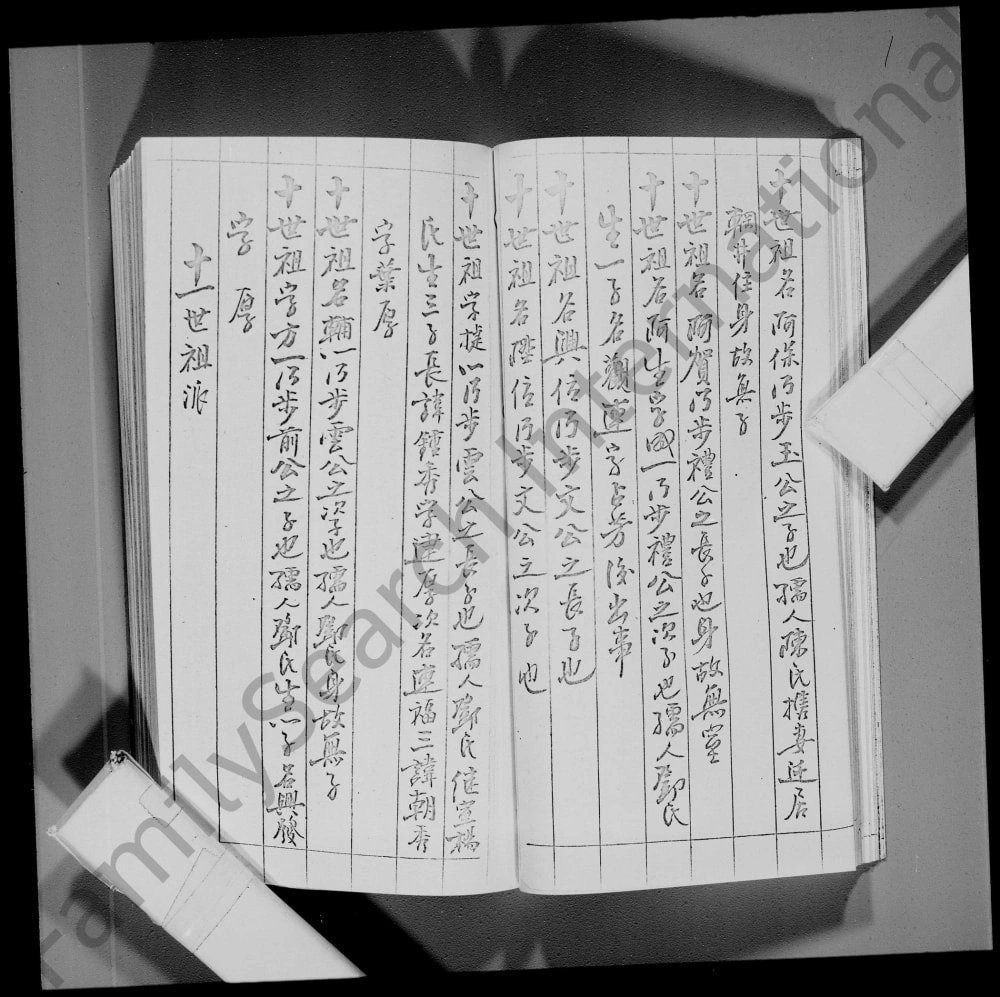 十世祖名阿保乃步玉公之子也孺人陳氏携妻迁居
輞井住身故無子
十世祖名阿賀乃步禮公之長子也身故無室
十世祖名阿生字國一乃步禮公之次子也孺人鄭氏
生一子名蘭連字占芳後出事
十世祖名興信乃步文公之長子也
十世祖名陞信乃步文公之次子也
十世祖字捷以乃步雲公之長子也孺人鄭氏继室楊
氏生三子長諱鍾秀字連厚次名連福三諱朝秀
字葉厚
十世祖名輔以乃步雲公之次子也孺人鄭氏身故無子
十世祖字方一乃步前公之子也孺人鄭氏生一子名興發
字 厚
十一世祖派
FamilySearch International
1